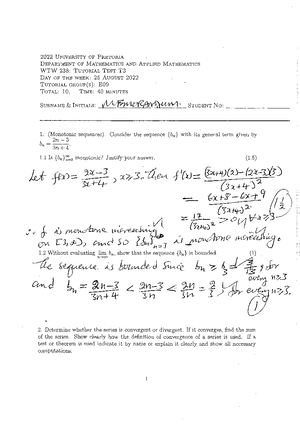 2022 University of Pretoria
Department of Mathematics and Applied Mathematics
WTW 238: Tutorial Test T3
Day of the week: 26 August 2022
Tutorial group(s): E09
Total: 10. Time: 40 minutes
Surname & Initials: Memorandum Student No:
1. (Monotonic sequences) Consider the sequence {bₙ} with its general term given by
bₙ = (2n − 3)/(3n + 4).
1.1 Is {bₙ} monotonic? Justify your answer. (1.5)
Let f(x) = (2x − 3)/(3x + 4), x ≥ 3. Then f'(x) = ((3x+4)(2) − (2x−3)(3))/(3x+4)²
= (6x + 8 − 6x + 9)/(3x+4)²
= 17/(3x+4)² > 0, ∀ x ≥ 3 1½
∴ f is monotone increasing
on [3,∞), and so {bₙ} n=3 is monotone increasing.
1.2 Without evaluating lim bₙ, show that the sequence {bₙ} is bounded (1)
The sequence is bounded since bₙ ≥ 3/13, for every n ≥ 3
and bₙ = (2n−3)/(3n+4) < (2n−3)/3n < 2n/3n = 2/3, for every n ≥ 3.
(1)
2. Determine whether the series is convergent or divergent. If it converges, find the sum
of the series. Show clearly how the definition of convergence of a series is used. If a
test or theorem is used indicate it by name or explain it clearly and show all necessary
computations.
1